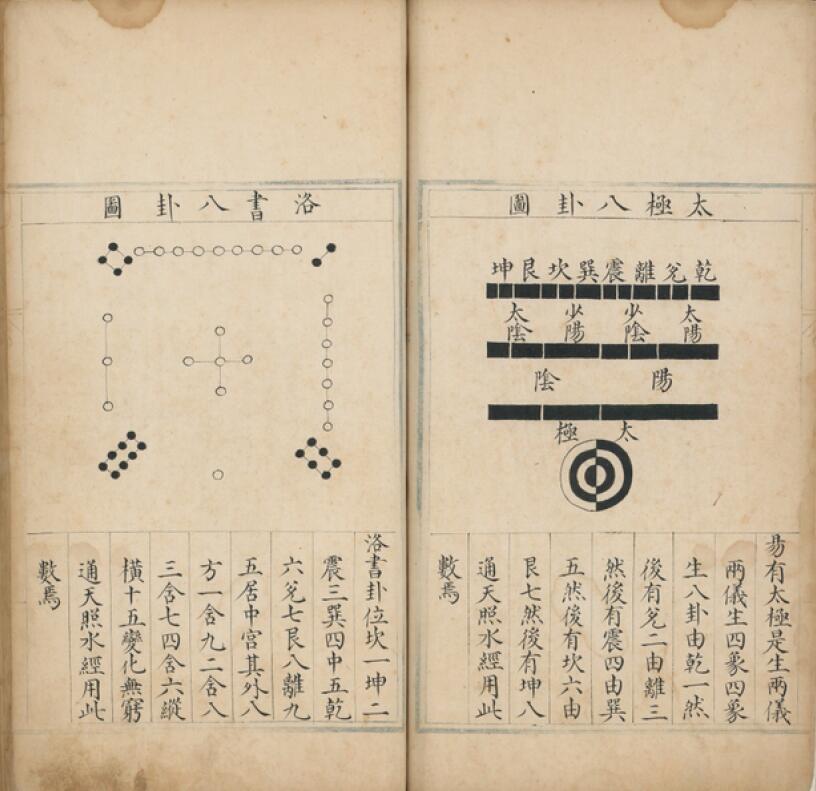 太極八卦圖
乾兌離震巽坎艮坤
太陽 少陰 少陽 太陰
陽 陰
太極
昜有太極是生兩儀
兩儀生四象四象
生八卦由乾一然
後有兌二由離三
然後有震四由巽
五然後有坎六由
艮七然後有坤八
通天照水經用此
數焉
洛書八卦圖
洛書卦位坎一坤二
震三巽四中五乾
六兌七艮八離九
五居中宮其外八
方一含九二含八
三含七四含六縱
橫十五變化無窮
通天照水經用此
數焉